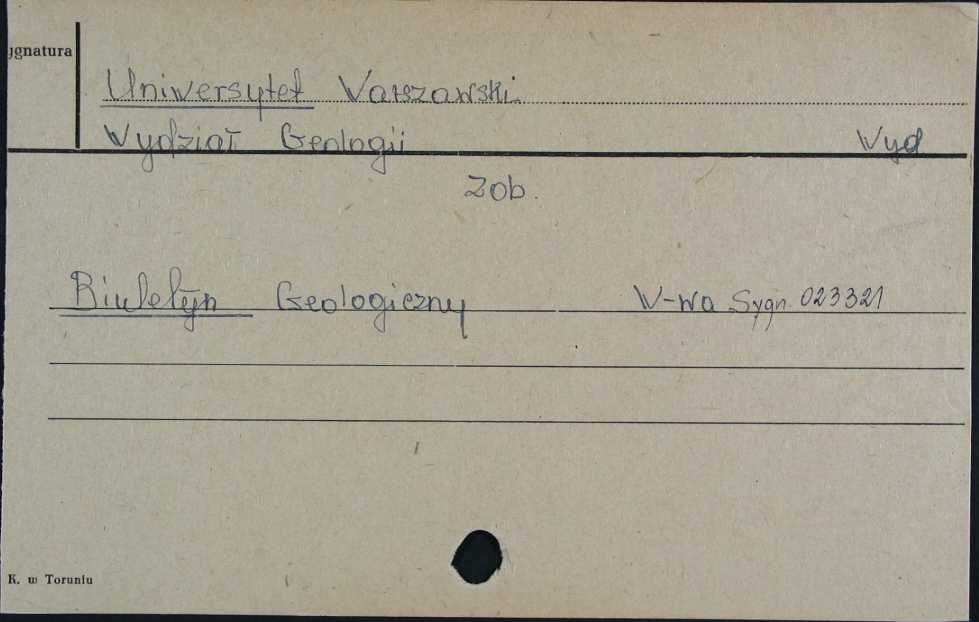 ygnatura
Uniwersytet Warszawski
Wydział Geologii Wyd
Zob.
Biuletyn Geologiczny W-wa Sygn. 023321
K. w Toruniu